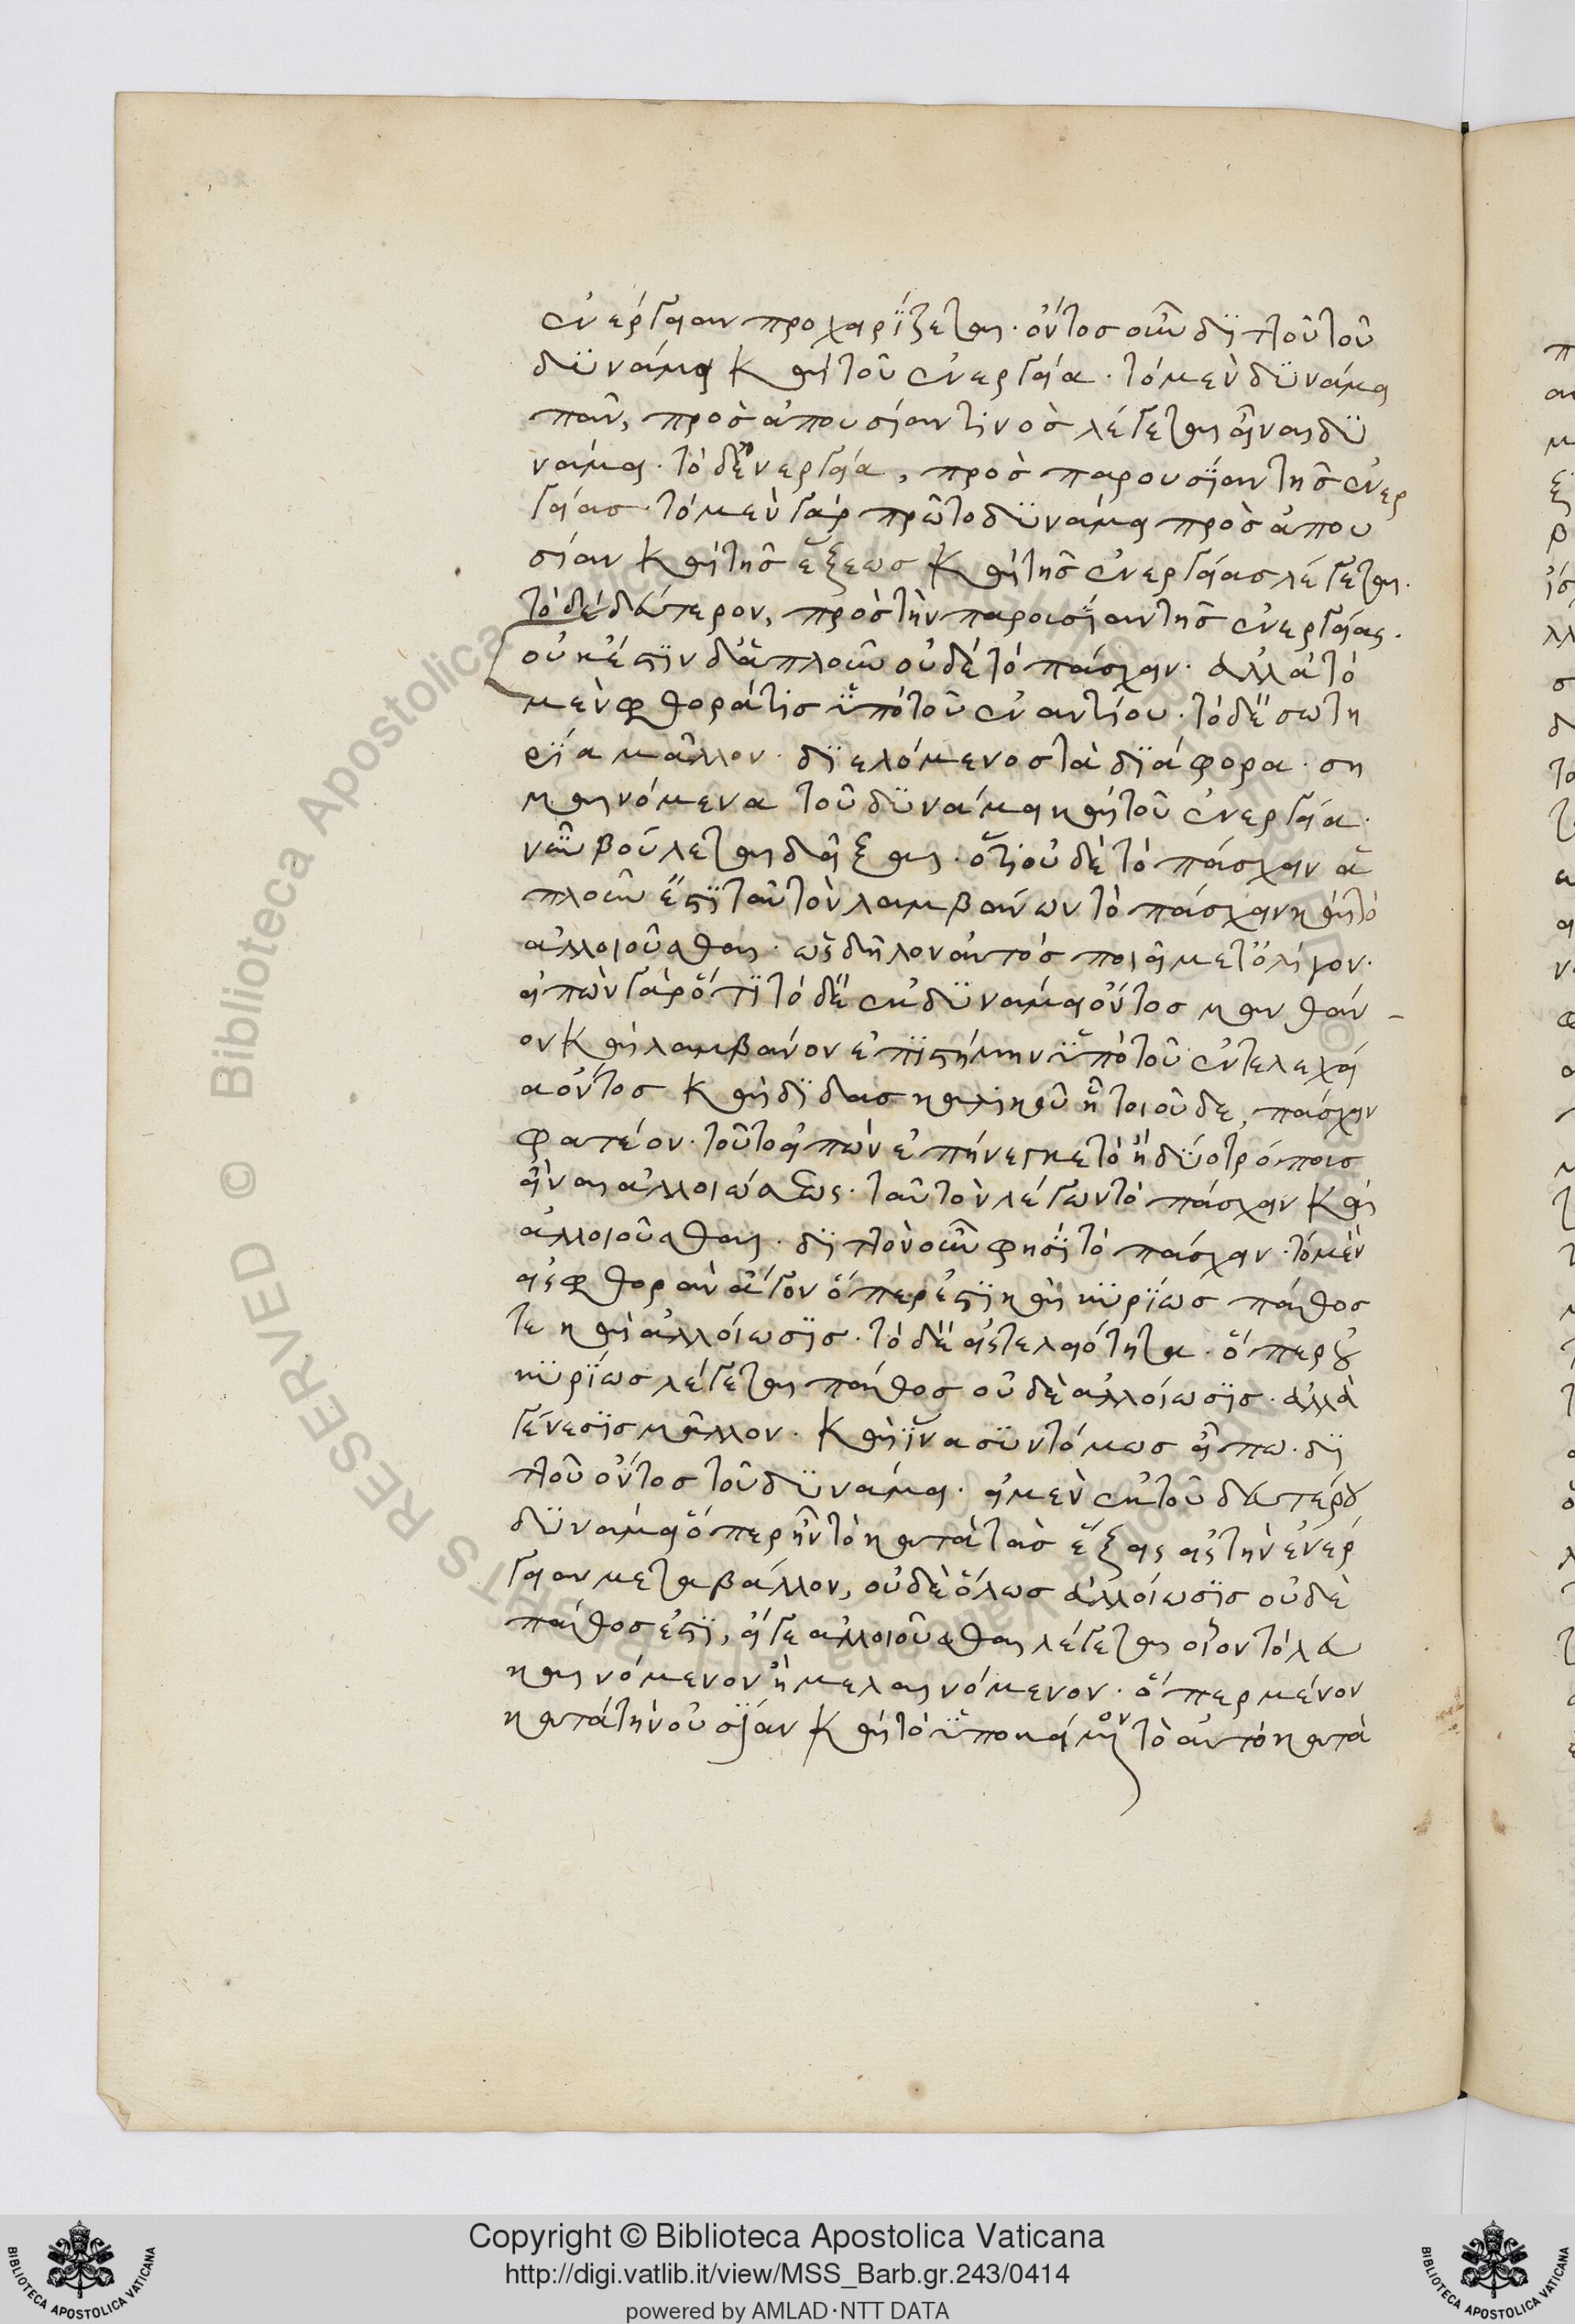 ἐνέργειαν προχειρΐζεται· ὄντος οὖν δϊττοῦ τοῦ
δϋνάμει καὶ τοῦ ἐνεργείᾳ· τὸ μὲν δϋνάμει
πᾶν, πρὸς ἀπουσίαν τινὸς λέγεται εἶναι δϋ
νάμει· τὸ δ' ἐνεργείᾳ, πρὸς παρουσΐαν τῆς ἐνερ
γείας· τὸ μὲν γὰρ πρῶτο δϋνάμει πρὸς ἀπου
σίαν καὶ τῆς ἕξεως καὶ τῆς ἐνεργείας λέγεται·
τὸ δὲ δεύτερον, πρὸς τὴν παρουσΐαν τῆς ἐνεργείας·
οὐκ ἔστϊν δ' ἁπλοῦν οὐδὲ τὸ πάσχειν· ἀλλὰ τὸ
μὲν φθορά τις ϋπὸ τοῦ ἐναντίου· τὸ δὲ σωτη
ρΐα μᾶλλον· δϊελόμενος τὰ δϊάφορα· ση
μαινόμενα τοῦ δϋνάμει καὶ τοῦ ἐνεργείᾳ·
νῦν βούλεται δεῖξαι· ὅτι οὐδὲ τὸ πάσχειν ἁ
πλοῦν ἔστϊ ταὐτὸν λαμβάνων τὸ πάσχειν καὶ τὸ
ἀλλοιοῦσθαι· ὡς δῆλον αὐτὸς ποιεῖ μετ' ὀλίγον·
εἰπὼν γὰρ ὅτϊ τὸ δὲ ἐκ δϋνάμει ὄντος μανθάν
ον καὶ λαμβάνον ἐπϊστήμην ϋπὸ τοῦ ἐντελεχεί
ᾳ ὄντος καὶ δϊδασκαλικοῦ ἢ τοιοῦδε, πάσχειν
φατέον· τοῦτο εἰπὼν ἐπήνεγκε τὸ ἢ δϋο τρόποις
εἶναι ἀλλοιώσεως· ταὐτὸν λέγων τὸ πάσχειν καὶ
ἀλλοιοῦσθαι· δϊττὸν οὖν φησΐ τὸ πάσχειν· τὸ μὲν
εἰς φθορὰν ἄγον ὅπερ ἐστϊ καὶ κϋρΐως πάθος
τε καὶ ἀλλοίωσϊς· τὸ δὲ εἰς τελειότητα· ὅπερ οὐ
κϋρΐως λέγεται πάθος οὐδὲ ἀλλοίωσϊς· ἀλλὰ
γένεσϊς μᾶλλον· καὶ ΐνα σϋντόμως εἴπω· δϊ
ττοῦ ὄντος τοῦ δϋνάμει· εἰ μὲν ἐκ τοῦ δευτέρου
δϋνάμει ὅπερ ἦν τὸ κατὰ τὰς ἕξεις εἰς τὴν ἐνέρ
γειαν μεταβάλλον, οὐδὲ ὅλως ἀλλοίωσϊς οὐδὲ
πάθος ἐστϊ, εἴγε ἀλλοιοῦσθαι λέγεται οἷον τὸ λευ
καινόμενον ἢ μελαινόμενον· ὅπερ μένον
κατὰ τὴν οὐσΐαν καὶ τὸ ϋποκείμενον τὸ αὐτὸ κατὰ
Copyright © Biblioteca Apostolica Vaticana
http://digi.vatlib.it/view/MSS_Barb.gr.243/0414
powered by AMLAD·NTT DATA